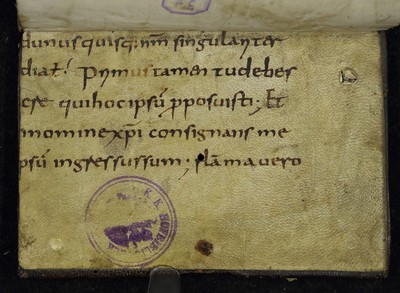 dunusquisq; nrm singulariter
diat! Primus tamen tu debes
esse qui hoc ipsū proposuisti; Et
in nomine xpi consignans me
psū ingressus sum; flamma vero
K. K. HOFBIBL